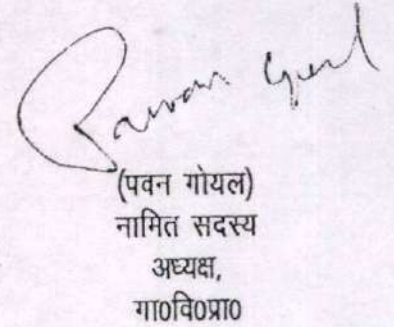 Pawan Goel
(पवन गोयल)
नामित सदस्य
अध्यक्ष,
गा०वि०प्रा०